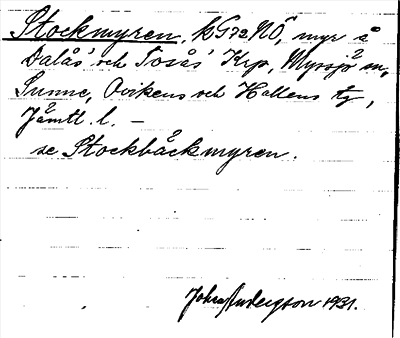 Stockmyren, k G72, NÖ, myr å
Dalås' och Tosås' Krp, Myssjö m,
Sunne, Ovikens och Hallens tg,
Jämtl. l. –
se Stockbäckmyren.
John Andersson 1931.